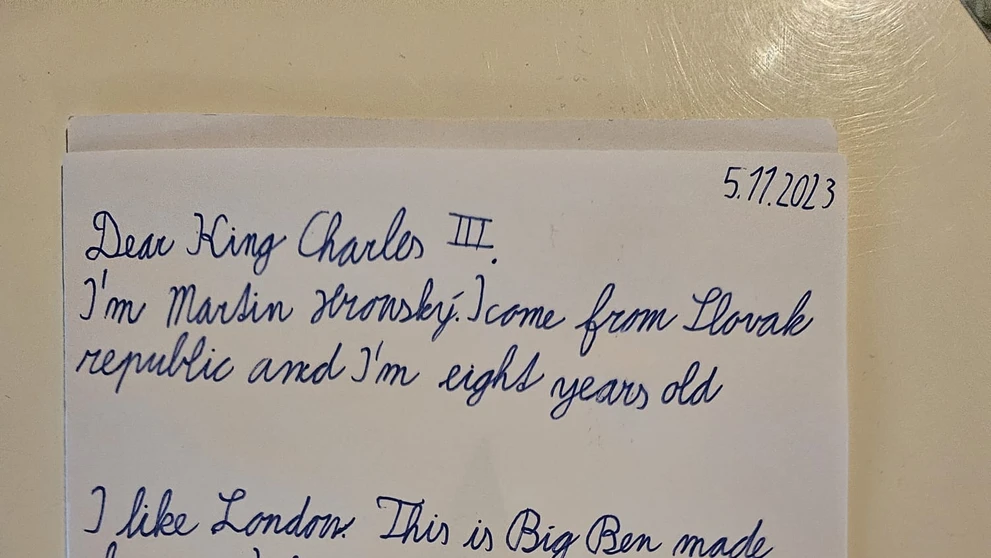 5.11.2023
Dear King Charles III.
I'm Martin Hronský. I come from Slovak
republic and I'm eight years old
I like London. This is Big Ben made